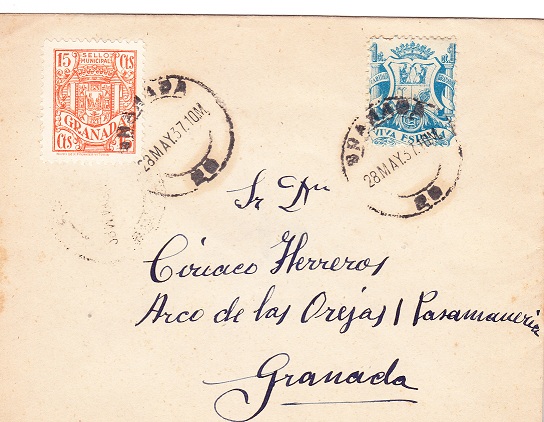 SELLO
MUNICIPAL
15 Cts
GRANADA
Cts
GRANADA
28 MAY.37.10M
VIVA ESPAÑA
GRANADA
28 MAY.37.10M
Sr Dn
Ciriaco Herreros
Arco de las Orejas 1 Pasamaneria
Granada